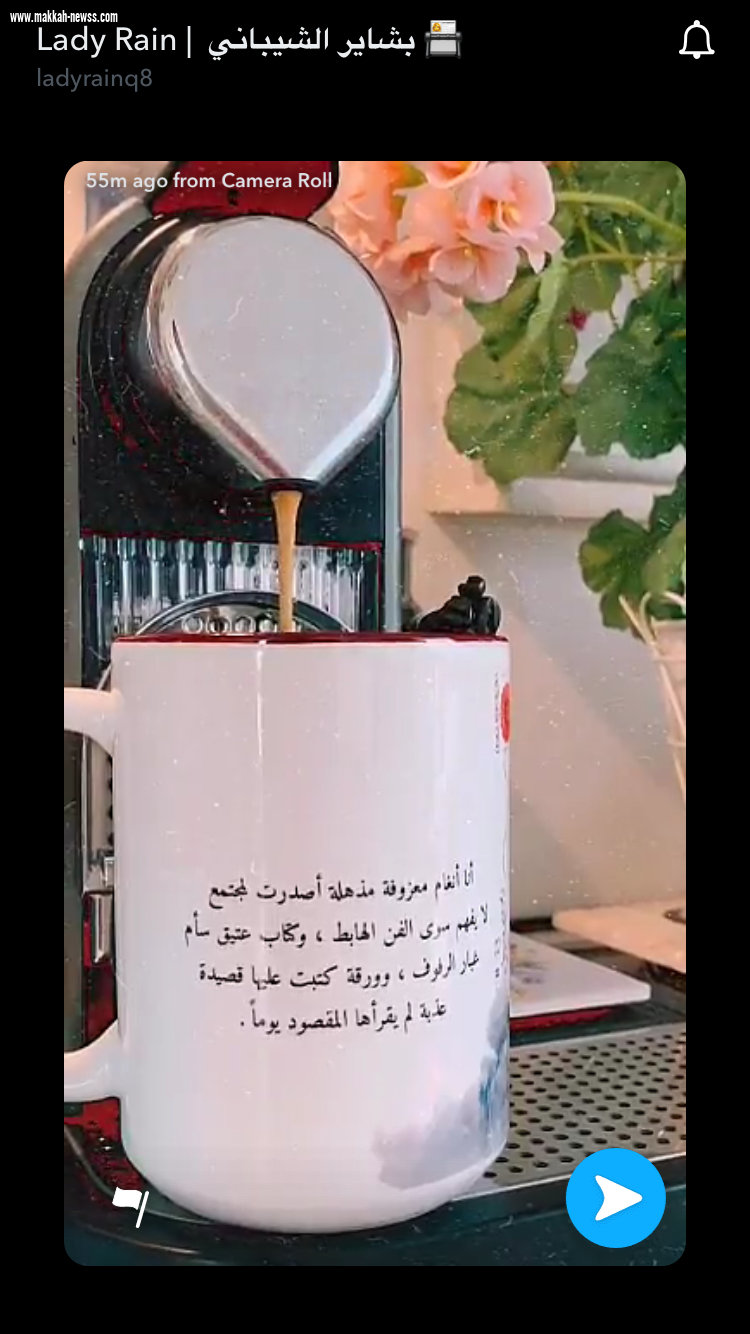 www.makkah-newss.com
Lady Rain | بشاير الشيباني
ladyrainq8
55m ago from Camera Roll
أنا أنغام معزوفة مذهلة أصدرت لمجتمع
لا يفهم سوى الفن الهابط ، وكتاب عتيق سأم
غبار الرفوف ، وورقة كتبت عليها قصيدة
عذبة لم يقرأها المقصود يوماً .